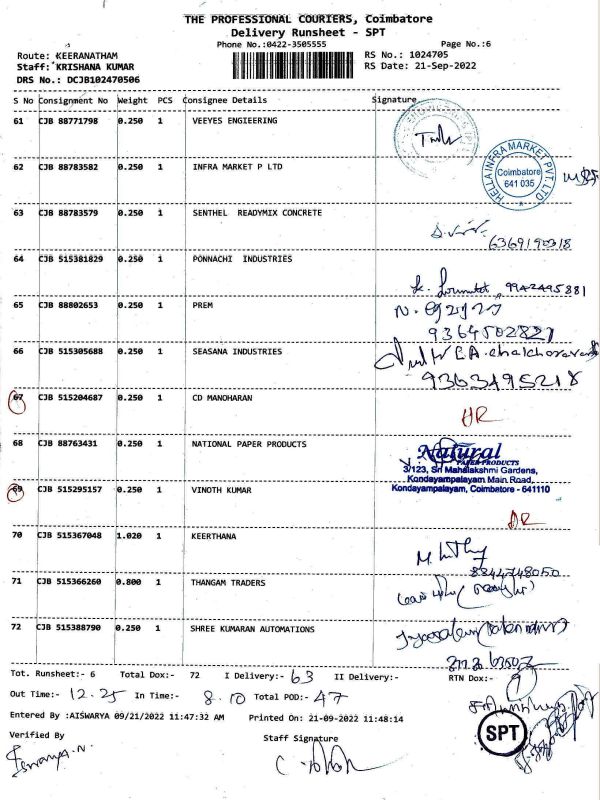 THE PROFESSIONAL COURIERS, Coimbatore
Delivery Runsheet - SPT
Phone No.:0422-3505555
Page No.:6
Route: KEERANATHAM
RS No.: 1024705
Staff: KRISHANA KUMAR
RS Date: 21-Sep-2022
DRS No.: DCJB102470506
S No Consignment No Weight PCS Consignee Details Signature
61 CJB 88771798 0.250 1 VEEYES ENGIEERING
62 CJB 88783582 0.250 1 INFRA MARKET P LTD
HELLA INFRA MARKET PVT. LTD
Coimbatore
641 035
63 CJB 88783579 0.250 1 SENTHEL READYMIX CONCRETE
6369190318
64 CJB 515381829 0.250 1 PONNACHI INDUSTRIES
9942495881
65 CJB 88802653 0.250 1 PREM
9364502821
66 CJB 515305688 0.250 1 SEASANA INDUSTRIES
9363495218
67 CJB 515204687 0.250 1 CD MANOHARAN
68 CJB 88763431 0.250 1 NATIONAL PAPER PRODUCTS
Natural
PAPER PRODUCTS
3/123, Sri Mahalakshmi Gardens,
Kondayampalayam Main Road,
Kondayampalayam, Coimbatore - 641110
69 CJB 515295157 0.250 1 VINOTH KUMAR
70 CJB 515367048 1.020 1 KEERTHANA
8844748050
71 CJB 515366260 0.800 1 THANGAM TRADERS
72 CJB 515388790 0.250 1 SHREE KUMARAN AUTOMATIONS
Tot. Runsheet:- 6 Total Dox:- 72 I Delivery:- 63 II Delivery:- RTN Dox:- 9
Out Time:- 12.25 In Time:- 8.10 Total POD:- 47
Entered By :AISWARYA 09/21/2022 11:47:32 AM Printed On: 21-09-2022 11:48:14
Verified By Staff Signature
SPT